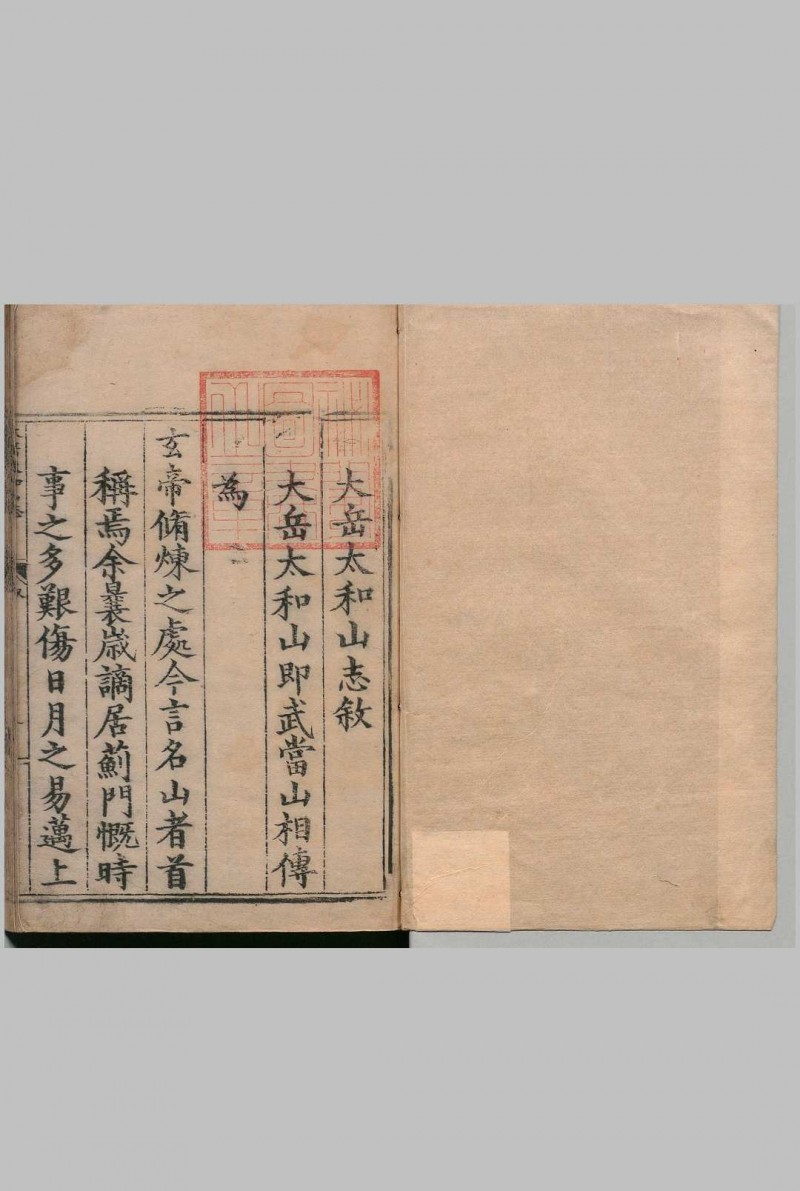 大岳太和山志敘
大岳太和山即武當山相傳
為
玄帝脩煉之處今言名山者首
稱焉余曩歲謫居薊門慨時
事之多艱傷日月之易邁上